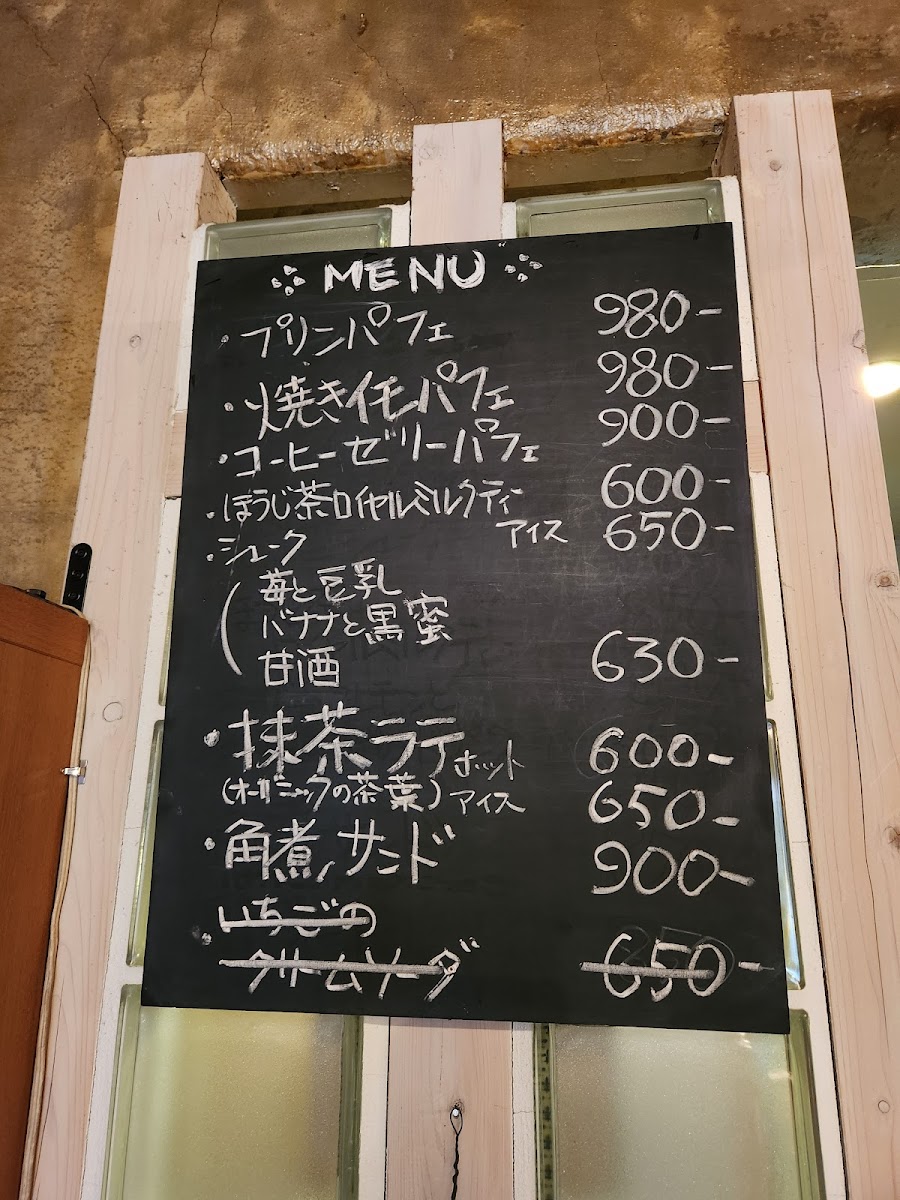 MENU
・プリンパフェ 980-
・焼きイモパフェ 980-
・コーヒーゼリーパフェ 900-
・ほうじ茶ロイヤルミルクティー 600-
アイス 650-
・シェーク
苺と豆乳
バナナと黒蜜
甘酒 630-
・抹茶ラテ ホット 600-
(オーガニックの茶葉) アイス 650-
・角煮サンド 900-
いちごの
・クリームソーダ 650-